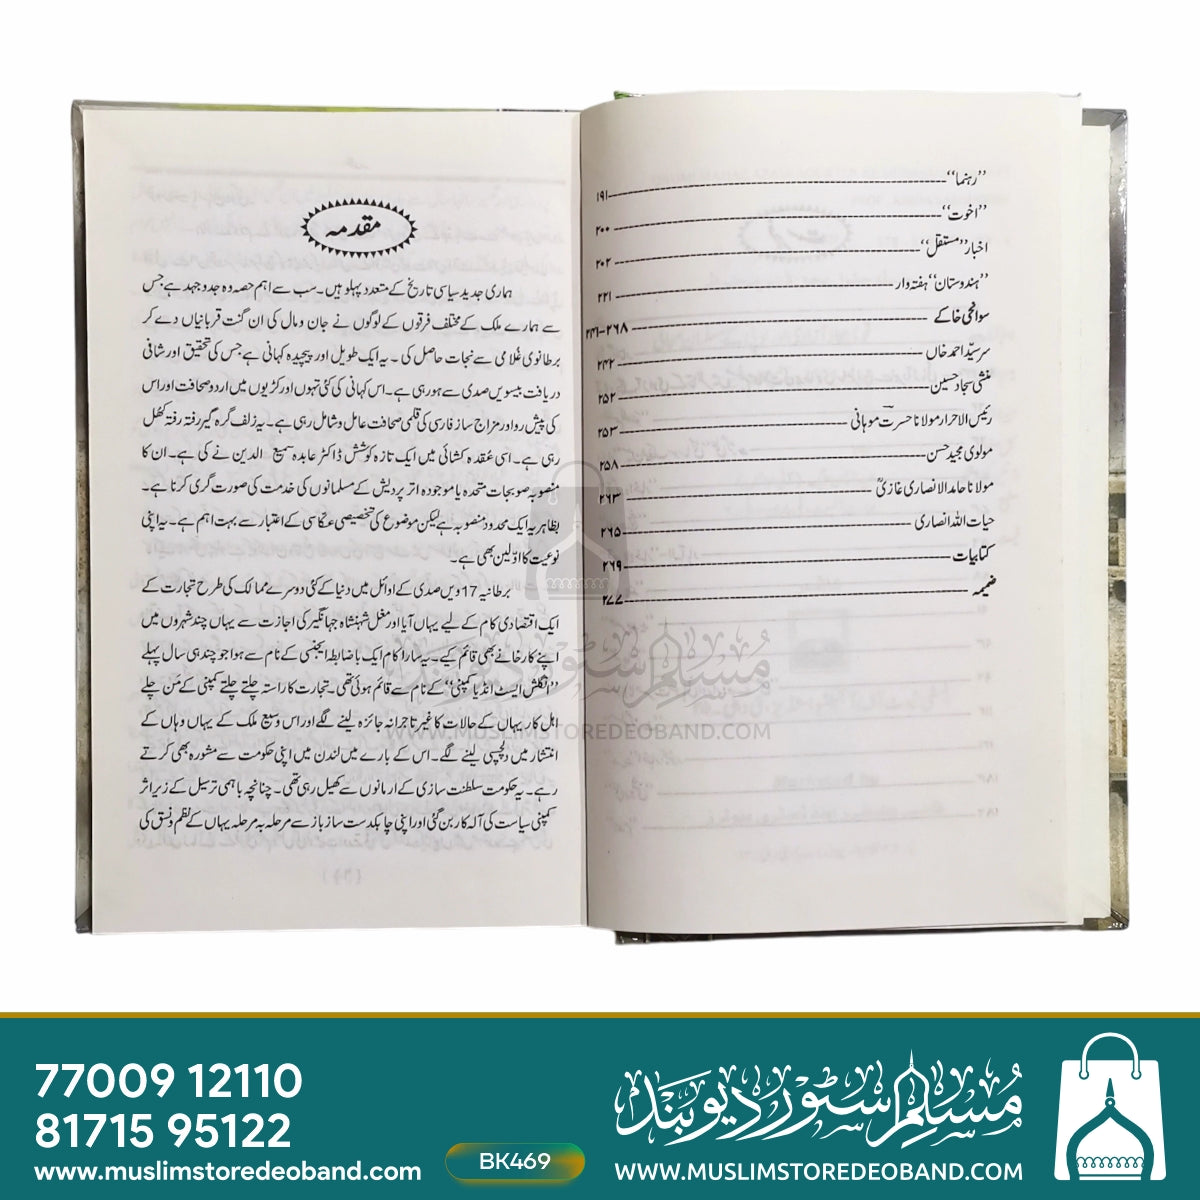 "رہنما" ۱۹۱
"اخوت" ۲۰۰
اخبار "مستقل" ۲۰۲
"ہندوستان" ہفتہ وار ۲۲۱
سوانحی خاکے ۲۴۱-۲۶۸
سر سیّد احمد خاں ۲۴۲
منشی سجاد حسین ۲۵۲
رئیس الاحرار مولانا حسرت موہانی ۲۵۳
مولوی مجید حسن ۲۵۸
مولانا حامد الانصاری غازیؒ ۲۶۳
حیات اللہ انصاری ۲۶۵
کتابیات ۲۶۹
ضمیمہ ۲۷۷
مقدمہ
ہماری جدید سیاسی تاریخ کے متعدد پہلو ہیں۔ سب سے اہم حصہ وہ جدوجہد ہے جس
سے ہمارے ملک کے مختلف فرقوں کے لوگوں نے جان و مال کی ان گنت قربانیاں دے کر
برطانوی غلامی سے نجات حاصل کی۔ یہ ایک طویل اور پیچیدہ کہانی ہے جس کی تحقیق اور شافی
دریافت بیسویں صدی سے ہو رہی ہے۔ اس کہانی کی کئی تہوں اور کڑیوں میں اردو صحافت اور اس
کی پیش رو اور مزاج ساز فارسی کی قلمی صحافت عامل و شامل رہی ہے۔ یہ زلف گرہ گیر رفتہ رفتہ کھل
رہی ہے۔ اسی عقدہ کشائی میں ایک تازہ کوشش ڈاکٹر عابدہ سمیع الدین نے کی ہے۔ ان کا
منصوبہ صوبجات متحدہ یا موجودہ اتر پردیش کے مسلمانوں کی خدمت کی صورت گری کرنا ہے۔
بظاہر یہ ایک محدود منصوبہ ہے لیکن موضوع کی تخصیصی عکاسی کے اعتبار سے بہت اہم ہے۔ یہ اپنی
نوعیت کا اوّلین بھی ہے۔
برطانیہ 17 ویں صدی کے اوائل میں دنیا کے کئی دوسرے ممالک کی طرح تجارت کے
ایک اقتصادی کام کے لیے یہاں آیا اور مغل شہنشاہ جہانگیر کی اجازت سے یہاں چند شہروں میں
اپنے کارخانے بھی قائم کیے۔ یہ سارا کام ایک باضابطہ ایجنسی کے نام سے ہوا جو چند ہی سال پہلے
"انگلش ایسٹ انڈیا کمپنی" کے نام سے قائم ہوئی تھی۔ تجارت کا راستہ چلتے چلتے کمپنی کے مَن چلے
اہل کار یہاں کے حالات کا غیر تاجرانہ جائزہ لینے لگے اور اس وسیع ملک کے یہاں وہاں کے
انتشار میں دلچسپی لینے لگے۔ اس کے بارے میں لندن میں اپنی حکومت سے مشورہ بھی کرتے
رہے۔ یہ حکومت سلطنت سازی کے ارمانوں سے کھیل رہی تھی۔ چنانچہ باہمی ترسیل کے زیر اثر
کمپنی سیاست کی آلہ کار بن گئی اور اپنی چابکدست ساز باز سے مرحلہ بہ مرحلہ یہاں کے نظم و نسق کی
مسلم سٹور دیوبند
WWW.MUSLIMSTOREDEOBAND.COM
77009 12110
81715 95122
www.muslimstoredeoband.com
BK469
مسلم سٹور دیوبند
WWW.MUSLIMSTOREDEOBAND.COM